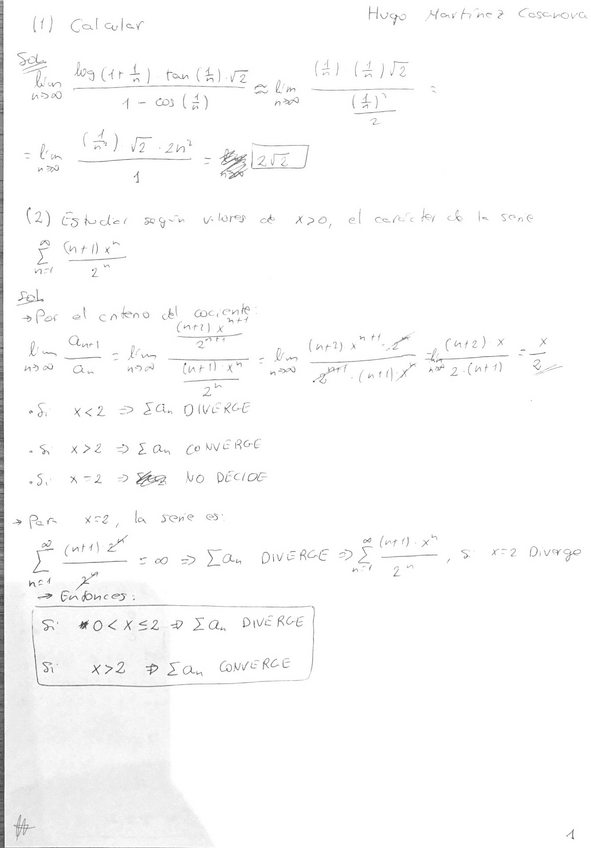 Hugo Martínez Casanova
(1) Calcular
Sol
lim n→∞ log(1+1/n) tan(1/n)·√2 / (1 - cos(1/n)) ≈ lim n→∞ (1/n)(1/n)√2 / ((1/n)²/2) =
= lim n→∞ (1/n²) √2 · 2n² / 1 = 2√2
(2) Estudiar según valores de x>0, el carácter de la serie
∑ n=1 ∞ (n+1)xⁿ / 2ⁿ
Sol
→ Por el criterio del cociente:
lim n→∞ aₙ₊₁/aₙ = lim n→∞ ((n+2)xⁿ⁺¹/2ⁿ⁺¹) / ((n+1)·xⁿ/2ⁿ) = lim n→∞ (n+2)xⁿ⁺¹·2ⁿ / (2ⁿ⁺¹·(n+1)·xⁿ) = lim n→∞ (n+2)x / (2·(n+1)) = x/2
· Si x<2 ⇒ ∑aₙ DIVERGE
· Si x>2 ⇒ ∑aₙ CONVERGE
· Si x=2 ⇒ NO DECIDE
→ Para x=2, la serie es:
∑ n=1 ∞ (n+1)2ⁿ / 2ⁿ = ∞ ⇒ ∑aₙ DIVERGE ⇒ ∑ n=1 ∞ (n+1)·xⁿ / 2ⁿ, si x=2 Diverge
→ Entonces:
Si 0<x≤2 ⇒ ∑aₙ DIVERGE
Si x>2 ⇒ ∑aₙ CONVERGE
1